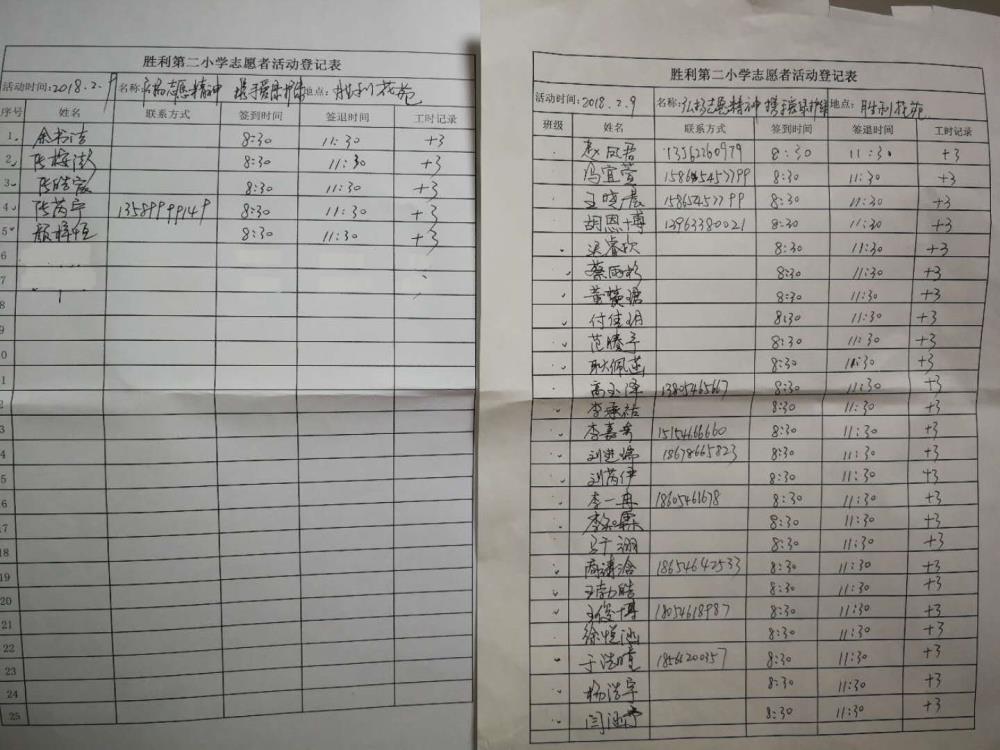 胜利第二小学志愿者活动登记表
活动时间:2018.2.9 名称:弘扬志愿精神 携手爱绿护绿 地点:胜利花苑
序号 姓名 联系方式 签到时间 签退时间 工时记录
1 余书洁 8:30 11:30 +3
2 张梓澎 8:30 11:30 +3
3 张皓宸 8:30 11:30 +3
4 张芮宁 13589999149 8:30 11:30 +3
5 颜梓恒 8:30 11:30 +3
6
7
8
9
0
1
2
3
4
5
16
17
18
19
20
21
22
23
24
25
胜利第二小学志愿者活动登记表
活动时间:2018.2.9 名称:弘扬志愿精神 携手爱绿护绿 地点:胜利花苑
班级 姓名 联系方式 签到时间 签退时间 工时记录
赵苡吾 13562260979 8:30 11:30 +3
冯宜萱 15865457799 8:30 11:30 +3
王晓晨 15865457799 8:30 11:30 +3
胡恩博 13963380021 8:30 11:30 +3
梁睿欣 8:30 11:30 +3
蔡雨彤 8:30 11:30 +3
黄蕴琚 8:30 11:30 +3
付佳玥 8:30 11:30 +3
范滕予 8:30 11:30 +3
耿佩莲 8:30 11:30 +3
高玉泽 13805465667 8:30 11:30 +3
李秉祐 8:30 11:30 +3
李嘉舟 15154666660 8:30 11:30 +3
刘进焯 18678665823 8:30 11:30 +3
刘芮伊 8:30 11:30 +3
李一冉 18605461678 8:30 11:30 +3
李和霖 8:30 11:30 +3
马于翊 8:30 11:30 +3
商涛涵 18654642533 8:30 11:30 +3
王勃皓 8:30 11:30 +3
王俊博 18054618987 8:30 11:30 +3
徐悦涵 8:30 11:30 +3
于浩瞳 18561200357 8:30 11:30 +3
杨浩宇 8:30 11:30 +3
闫涵 8:30 11:30 +3